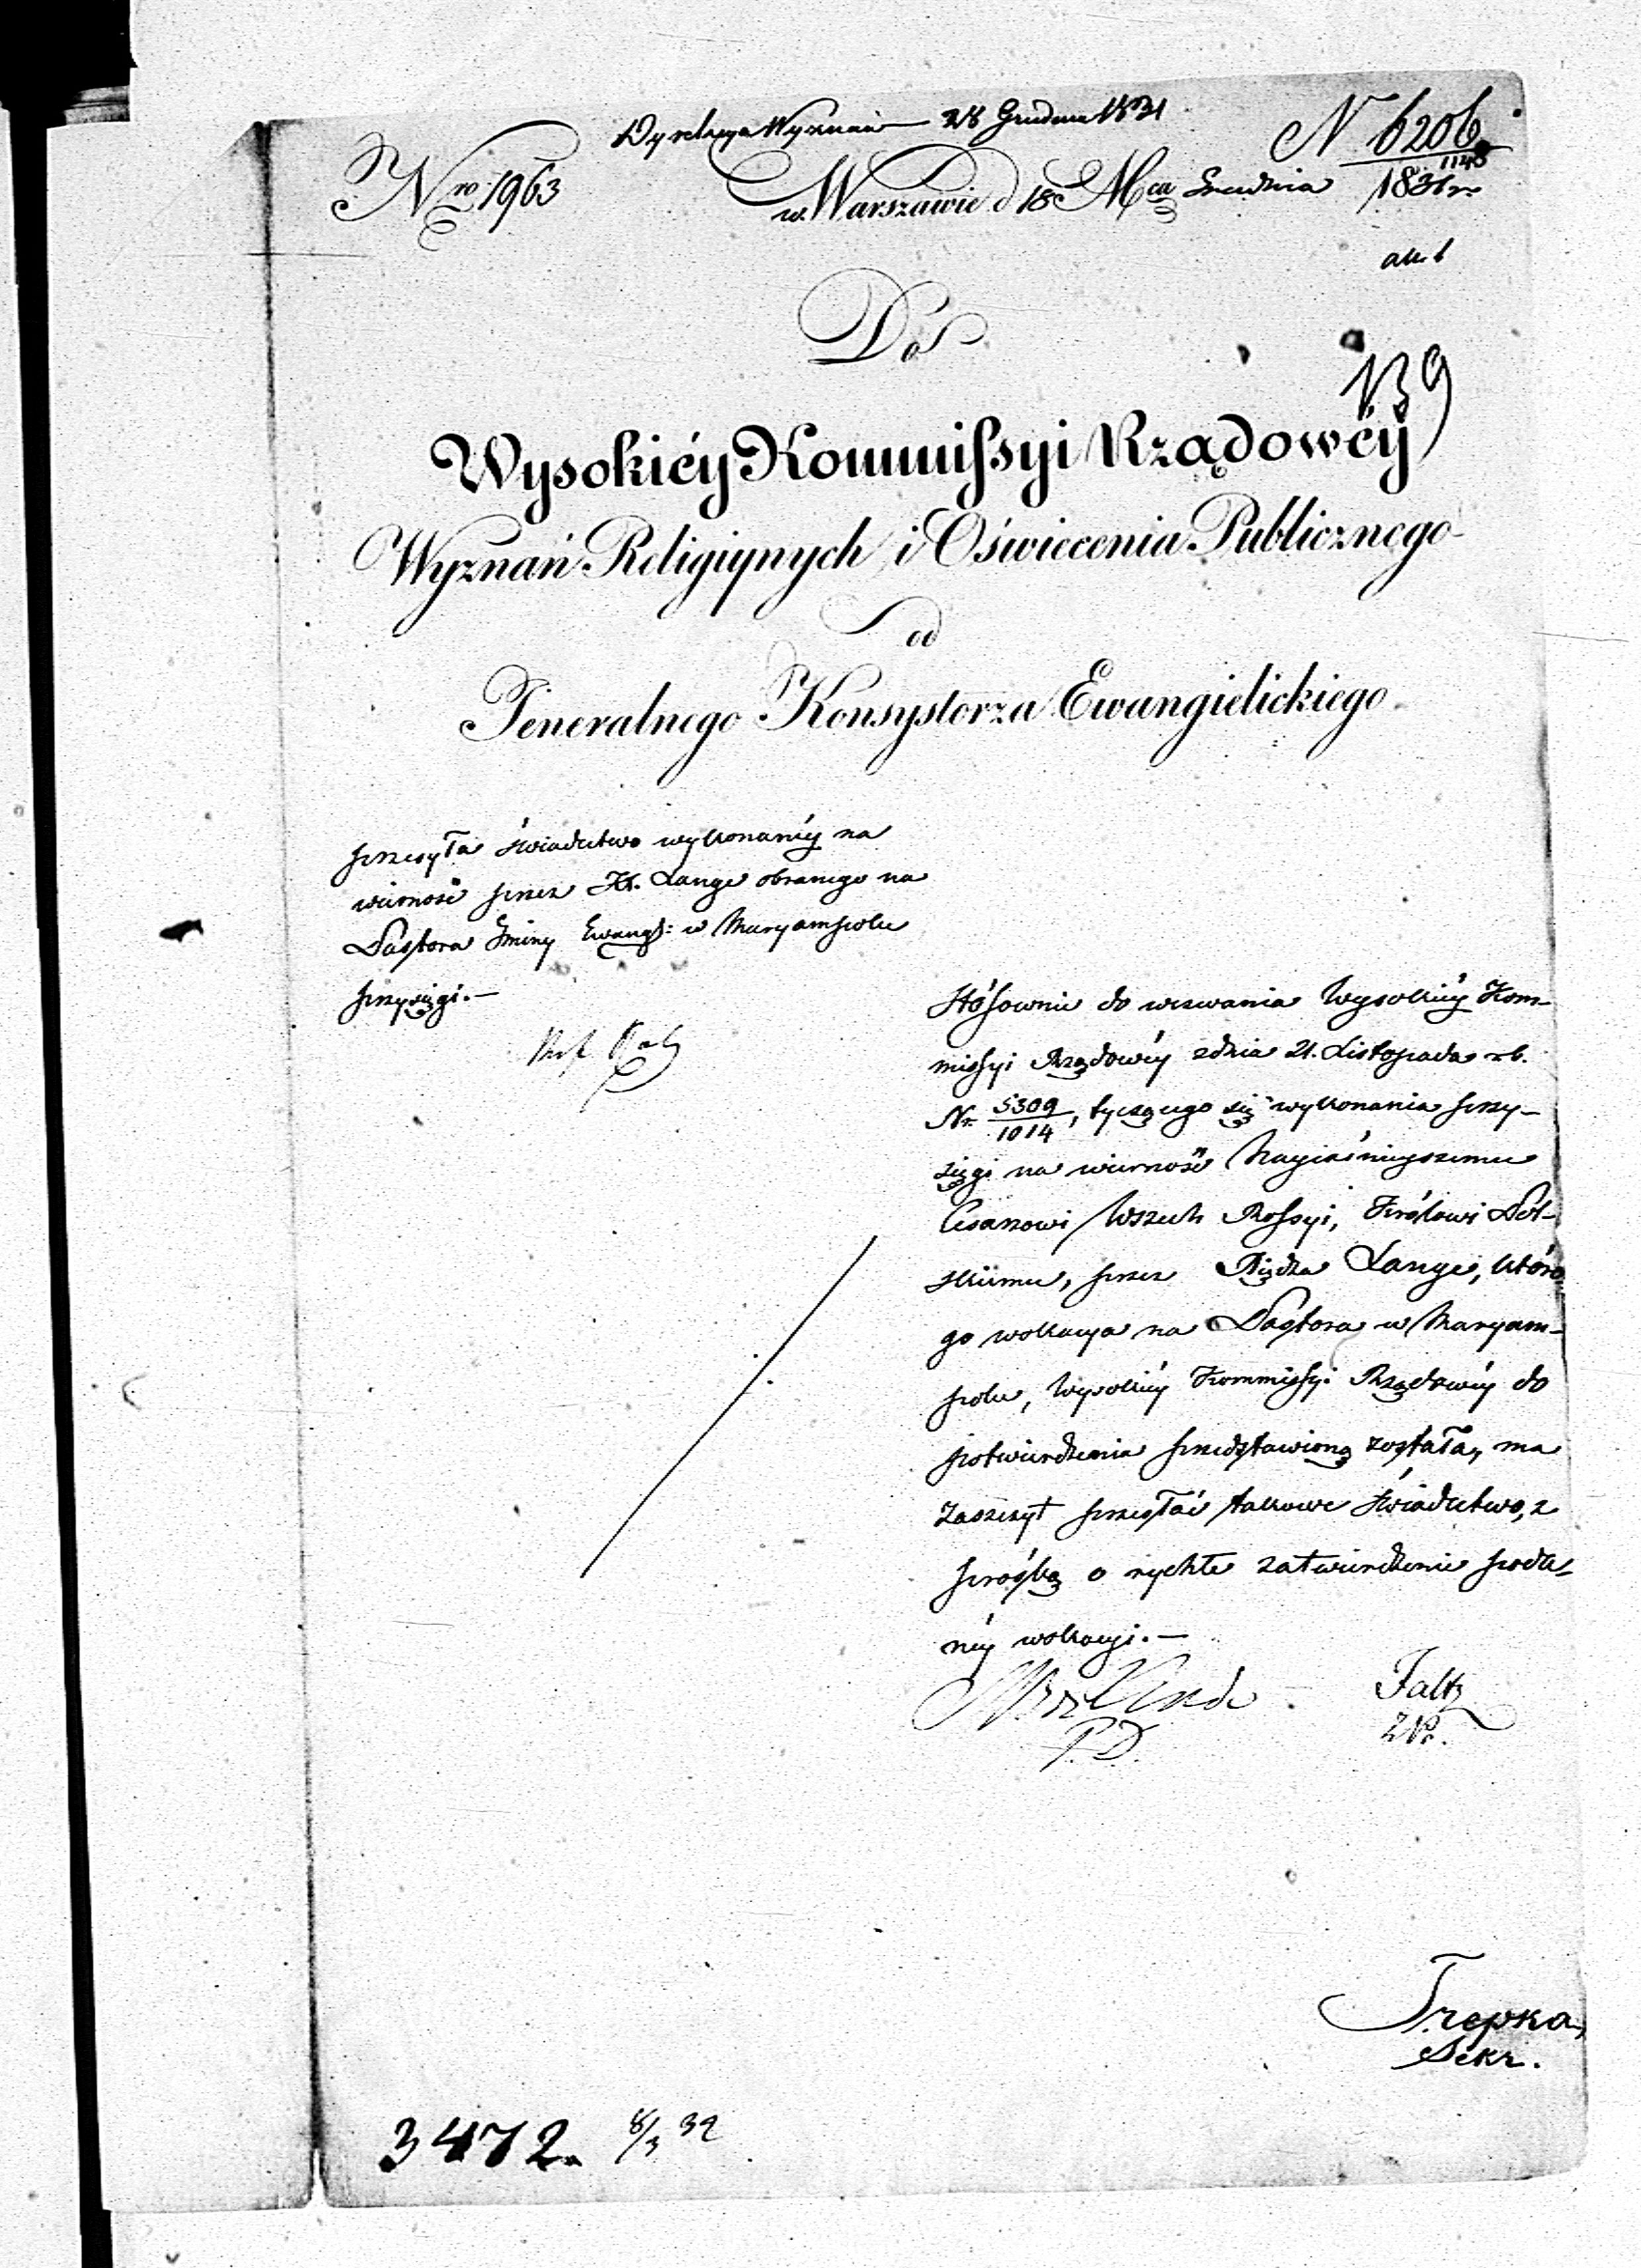 Dyrekcya Wyznań 28 Grudnia 1831
N 6206
1143
Nro 1963
w Warszawie d 18 Mca Grudnia 1831 r.
139
Do
Wysokiéy Kommissyi Rządowéy
Wyznań Religiynych i Oświecenia Publicznego
od
Jeneralnego Konsystorza Ewangielickiego
przesyła świadectwo wykonanéy na
wierność przez X. Lange obranego na
Pastora Gminy Ewangl: w Maryampolu
przysięgi.—
Stósownie do wezwania Wysokiéy Kom-
missyi Rządowéy z dnia 21. Listopada r b.
Nr. 5309/1014, tyczącego się wykonania przy-
sięgi na wierność Nayiaśnieyszemu
Cesarzowi Wszech Rossyi, Królowi Pol-
skiemu, przez Xiędza Lange, któré
go wokacya na Pastora w Maryam-
polu, Wysokiéy Kommissyi Rządowéy do
potwierdzenia przedstawioną została, ma
zaszczyt przesłać takowe świadectwo, z
prośbą o rychłe zatwierdzenie rzeczo-
néy wokacyi.—
P.D.
Faltz
Trepka,
Sekr.
3472. 8/3 32